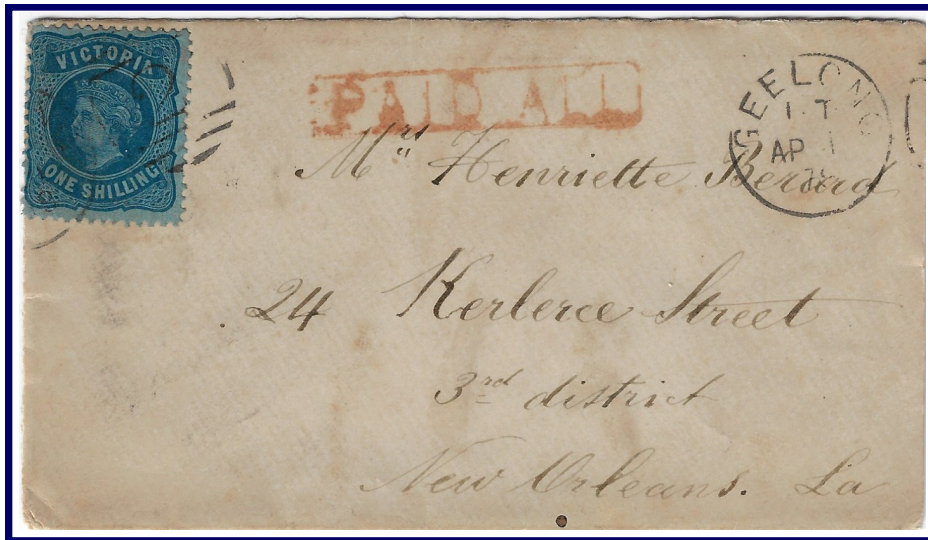 VICTORIA
ONE SHILLING
PAID ALL
GEELONG
AP 1
Mrs Henriette Berard
24 Kerlerce Street
3rd district
New Orleans. La